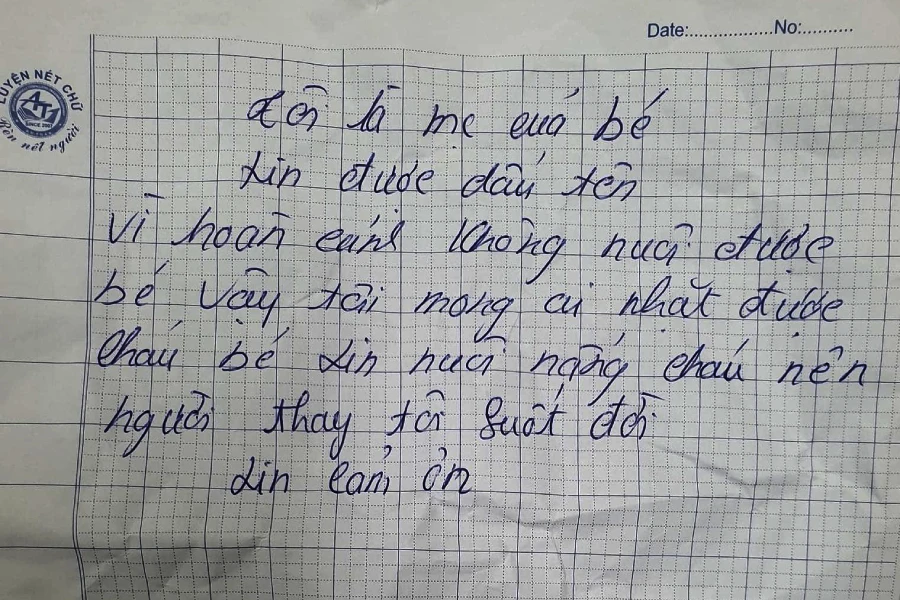 Date:.................No:..........
LUYỆN NÉT CHỮ
AT1
SINCE 2007
Rèn nết người
Tôi là mẹ cuả bé
xin được dấu tên
Vì hoàn cảnh không nuôi được
bé vậy tôi mong ai nhặt được
cháu bé xin nuôi nấng cháu nên
người thay tôi suốt đời
xin cảm ơn